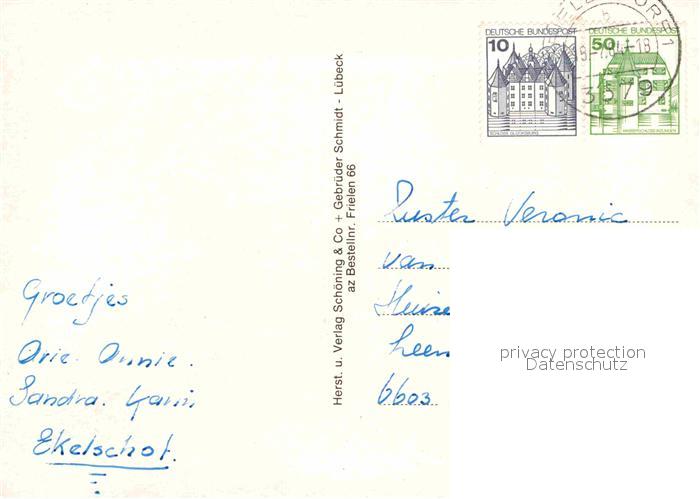 DEUTSCHE BUNDESPOST
10
SCHLOSS GLÜCKSBURG
DEUTSCHE BUNDESPOST
50
WASSERSCHLOSS INZLINGEN
3579
Herst. u. Verlag Schöning & Co + Gebrüder Schmidt - Lübeck
az Bestellnr. Frielen 66
Zuster Veronic
van
Heinse
heen
6603
Groetjes
Arie. Annie.
Sandra. Karin
Ekelschot.
privacy protection
Datenschutz